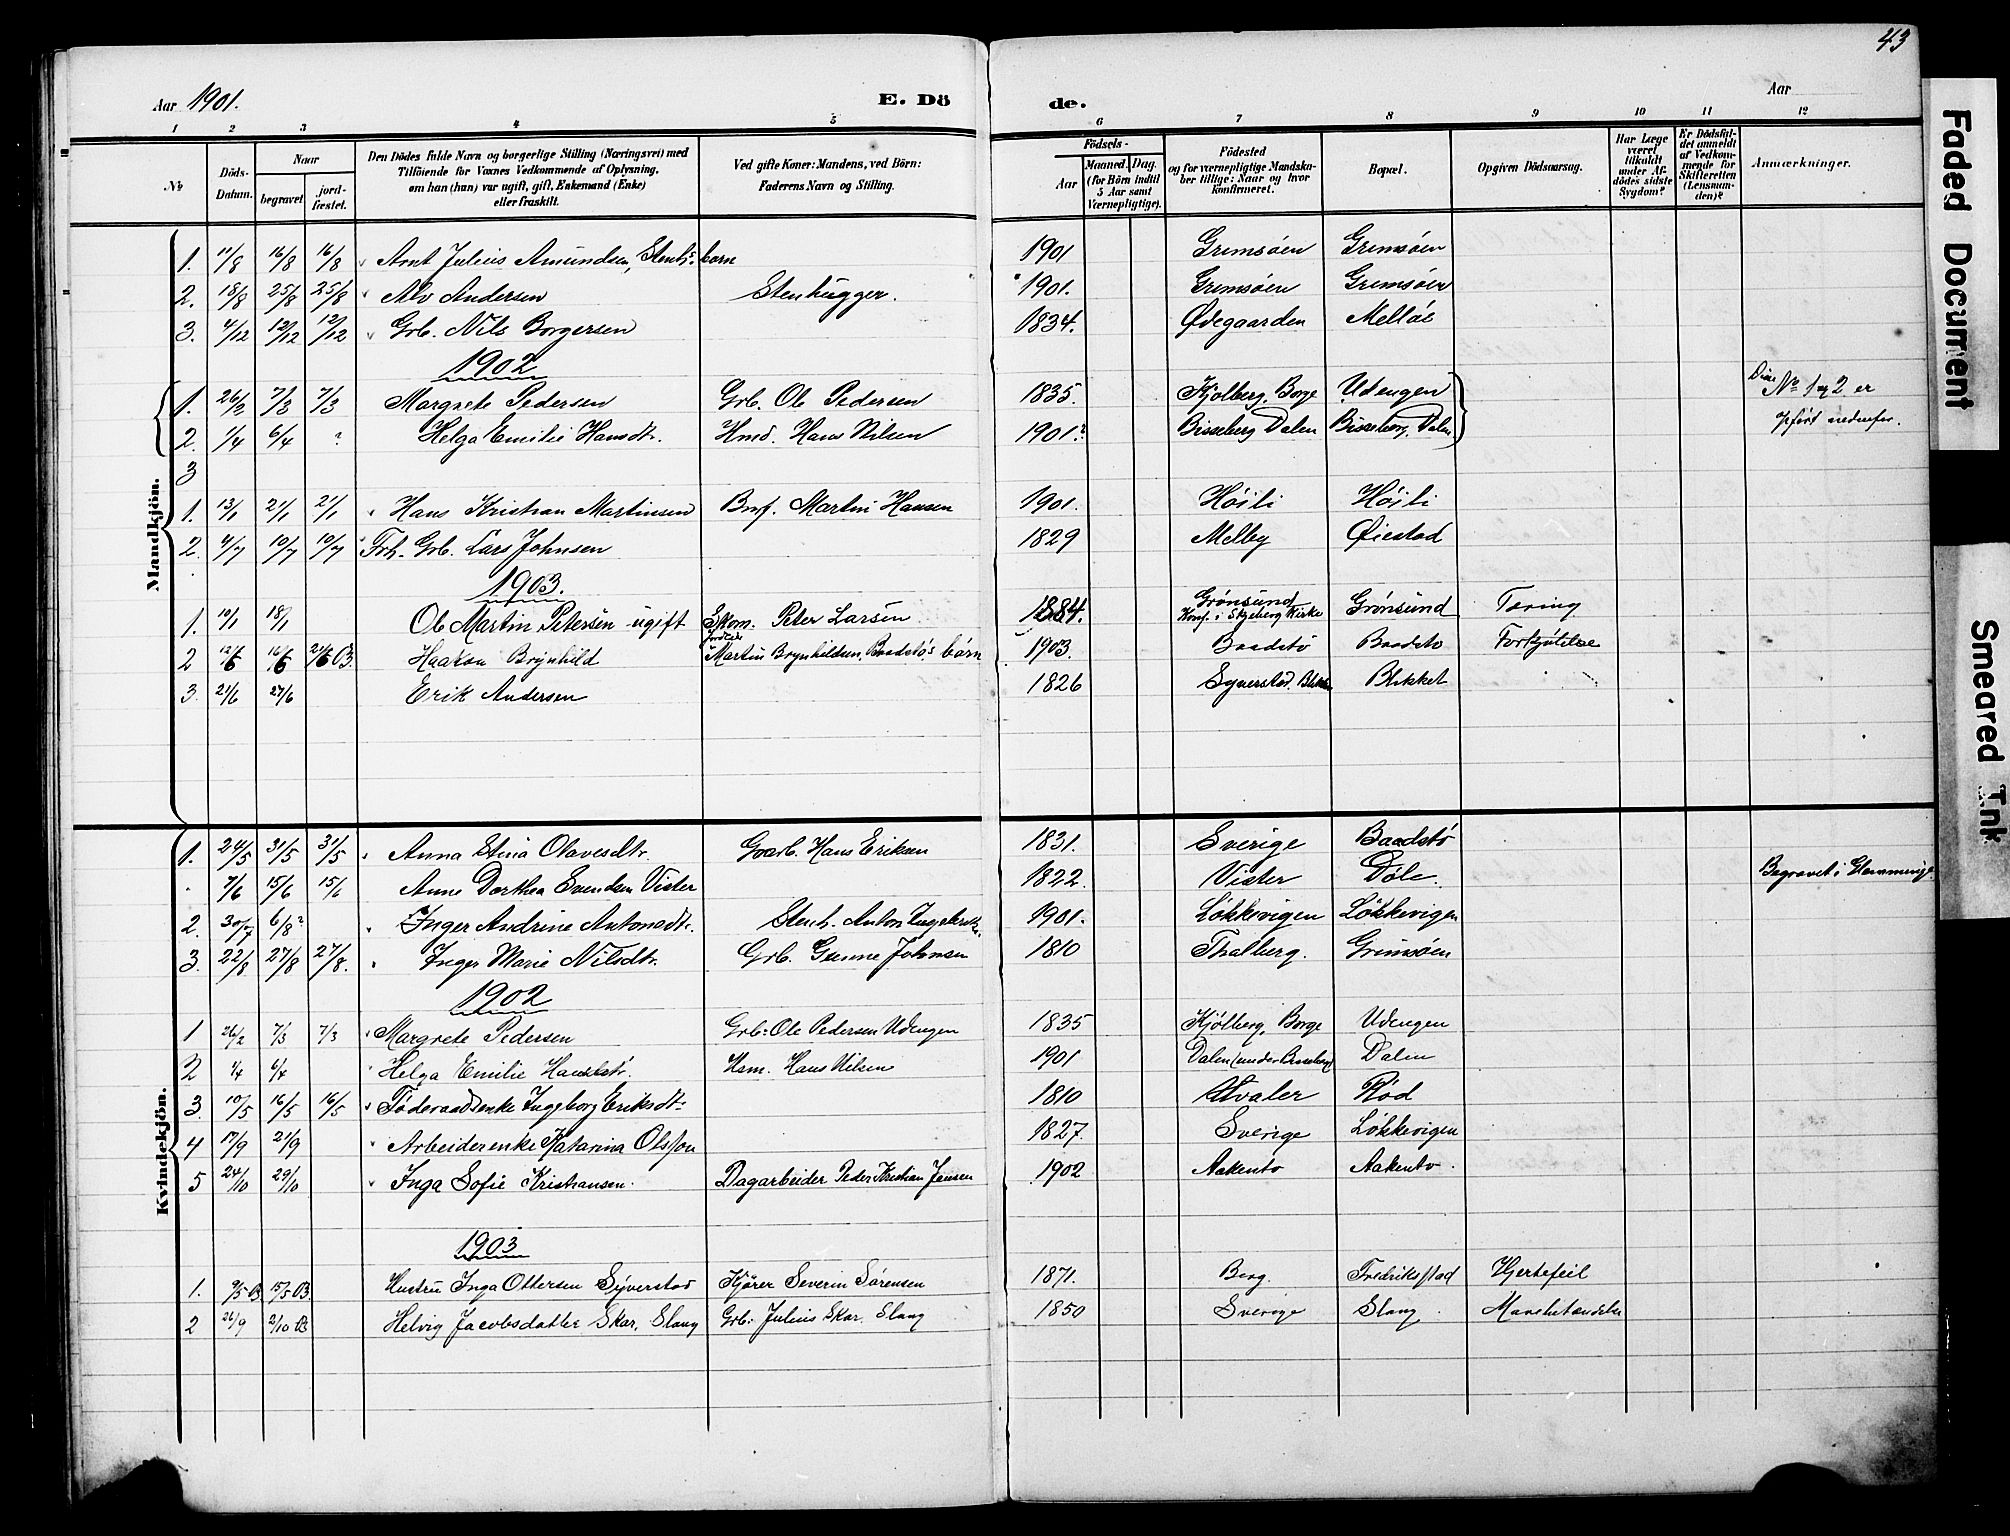 43
Aar 1901. E. Dö de. Aar
1 2 3 4 5 6 7 8 9 10 11 12
No Döds-Datum. Naar begravet jordfæstet. Den Dödes fulde Navn og borgerlige Stilling (Næringsvei) med Tilföiende for Voxnes Vedkommende af Oplysning, om han (hun) var ugift, gift, Enkemand (Enke) eller fraskilt. Ved gifte Koner: Mandens, ved Börn: Faderens Navn og Stilling. Födsels- Aar Maaned. Dag. (for Börn indtil 5 Aar samt Værnepligtige). Födested og for værnepligtige Mandskaber tillige: Naar og hvor konfirmeret. Bopæl. Opgiven Dödsaarsag. Har Læge været tilkaldt under Afdödes sidste Sygdom? Er Dödsfaldet anmeldt af Vedkommende for Skifteretten (Lensmanden)? Anmærkninger.
Mandkjön.
1. 11/8 16/8 16/8 Arnt Julius Amundsen, Stenh: barn 1901 Grimsøen Grimsøen
2. 18/8 25/8 25/8 Alv Andersen Stenhugger. 1901. Grimsøen Grimsøen
3. 4/12 12/12 12/12 Grb. Nils Borgersen 1834. Ødegaarden Melløs
1902
1. 26/2 7/3 7/3 Margrete Pedersen Grb. Ole Pedersen 1835. Kjølberg, Borge Udengen No 1 og 2 er
2. 1/4 6/4 ? Helga Emilie Hansdtr. Hmd. Hans Nilsen 1901.? Bisseberg Dalen Bisseberg, Dalen opført nedenfor.
3
1. 13/1 21/1 21/1 Hans Kristian Martinsen Brf. Martin Hansen 1901. Høili Høili
2. 4/7 10/7 10/7 Frh. Grb. Lars Johnsen 1829 Melby Øiestad
1903.
1. 10/1 18/1 Ole Martin Petersen ugift Skom. Peter Larsen 1884. Grønsund Konf. i Skjeberg Kirke Grønsund Tæring
2 12/6 16/6 21/6 03. Haakon Brynhild Martin Brynhildsen, Baadstø's børn 1903. Baadstø Baadstø Forkjølelse
3. 21/6 27/6 Erik Andersen 1826 Syverstad, Blikket
Kvindekjön.
1. 24/5 31/5 31/5 Anna Stina Olavesdtr. Gaarb. Hans Eriksen 1831. Sverige Baadstø
7/6 15/6 15/6 Anne Dorthea Svendsen Vister 1822. Vister Døle. Begravet i Glemminge
2. 30/7 6/8? Inger Andrine Antonsdtr. Stenh. Anton Ingebrets. 1901. Løkkevigen Løkkevigen
3. 22/8 27/8 27/8. Inger Marie Nilsdtr. Grb. Gunne Johnsen 1810 Thalberg. Grimsøen
1902
1 26/2 7/3 7/3 Margrete Pedersen Grb: Ole Pedersen Udengen 1835 Kjølberg, Borge Udengen
2 1/4 6/4 Helga Emilie Hansdtr. Hsm. Hans Nilsen 1901 Dalen (under Bisseberg) Dalen
3. 10/5 16/5 16/5 Føderaadsenke Ingeborg Eriksdtr 1810 Hvaler Rød
4 17/9 21/9 Arbeiderenke Katarina Olsson 1827. Sverige Løkkevigen
5 24/10 29/10 Inga Sofie Kristiansen. Dagarbeider Peder Kristian Jensen 1902 Aakentø Aakentø.
1903
1. 9/5 03. 15/5 03. Hustru Inga Ottersen Syverstad Kjører Severin Sørensen 1871. Berg. Fredriksstad Hjertefeil
2 26/9 2/10 03 Helvig Jacobsdatter Skar, Slang Grb: Julius Skar, Slang 1850 Sverige Slang.
Faded Document
Smeared Ink